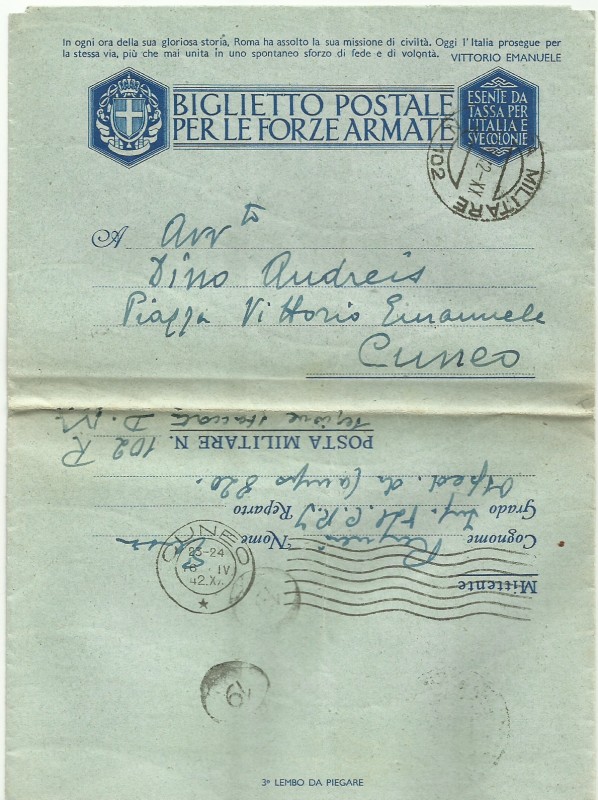 In ogni ora della sua gloriosa storia, Roma ha assolto la sua missione di civiltà. Oggi l'Italia prosegue per
la stessa via, più che mai unita in uno spontaneo sforzo di fede e di volontà. VITTORIO EMANUELE
BIGLIETTO POSTALE
PER LE FORZE ARMATE
ESENTE DA
TASSA PER
L'ITALIA E
SVE COLONIE
MILITARE
102
2-XX
A Avv to
Dino Andreis
Piazza Vittorio Emanuele
Cuneo
Mittente
Cognome Nome
Grado Reparto
Osped. da Campo 820.
POSTA MILITARE N. 102 R
sezione staccata D. M
CUNEO
23-24
IV
42.XX
19
3º LEMBO DA PIEGARE